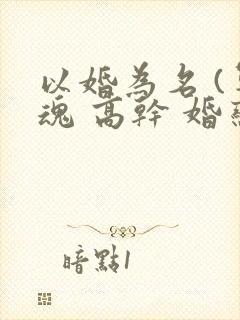 以婚為名(
魂 高幹 婚
暗點1